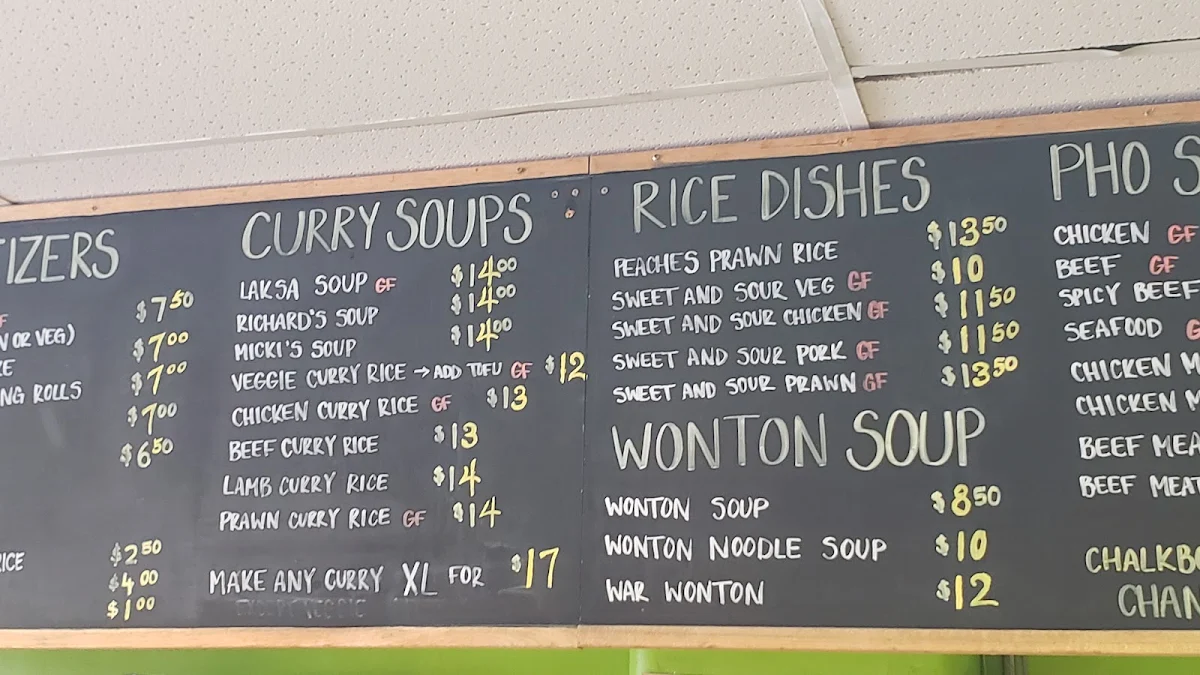 TIZERS
$7.50
N OR VEG) $7.00
$7.00
NG ROLLS $7.00
$6.50
RICE $2.50
$4.00
$1.00
CURRY SOUPS
LAKSA SOUP GF $14.00
RICHARD'S SOUP $14.00
MICKI'S SOUP $14.00
VEGGIE CURRY RICE → ADD TOFU GF $12
CHICKEN CURRY RICE GF $13
BEEF CURRY RICE $13
LAMB CURRY RICE $14
PRAWN CURRY RICE GF $14
MAKE ANY CURRY XL FOR $17
EXCEPT VEGGIE
RICE DISHES
PEACHES PRAWN RICE $13.50
SWEET AND SOUR VEG GF $10
SWEET AND SOUR CHICKEN GF $11.50
SWEET AND SOUR PORK GF $11.50
SWEET AND SOUR PRAWN GF $13.50
WONTON SOUP
WONTON SOUP $8.50
WONTON NOODLE SOUP $10
WAR WONTON $12
PHO S
CHICKEN GF
BEEF GF
SPICY BEEF
SEAFOOD G
CHICKEN M
CHICKEN M
BEEF MEA
BEEF MEAT
CHALKBO
CHAN